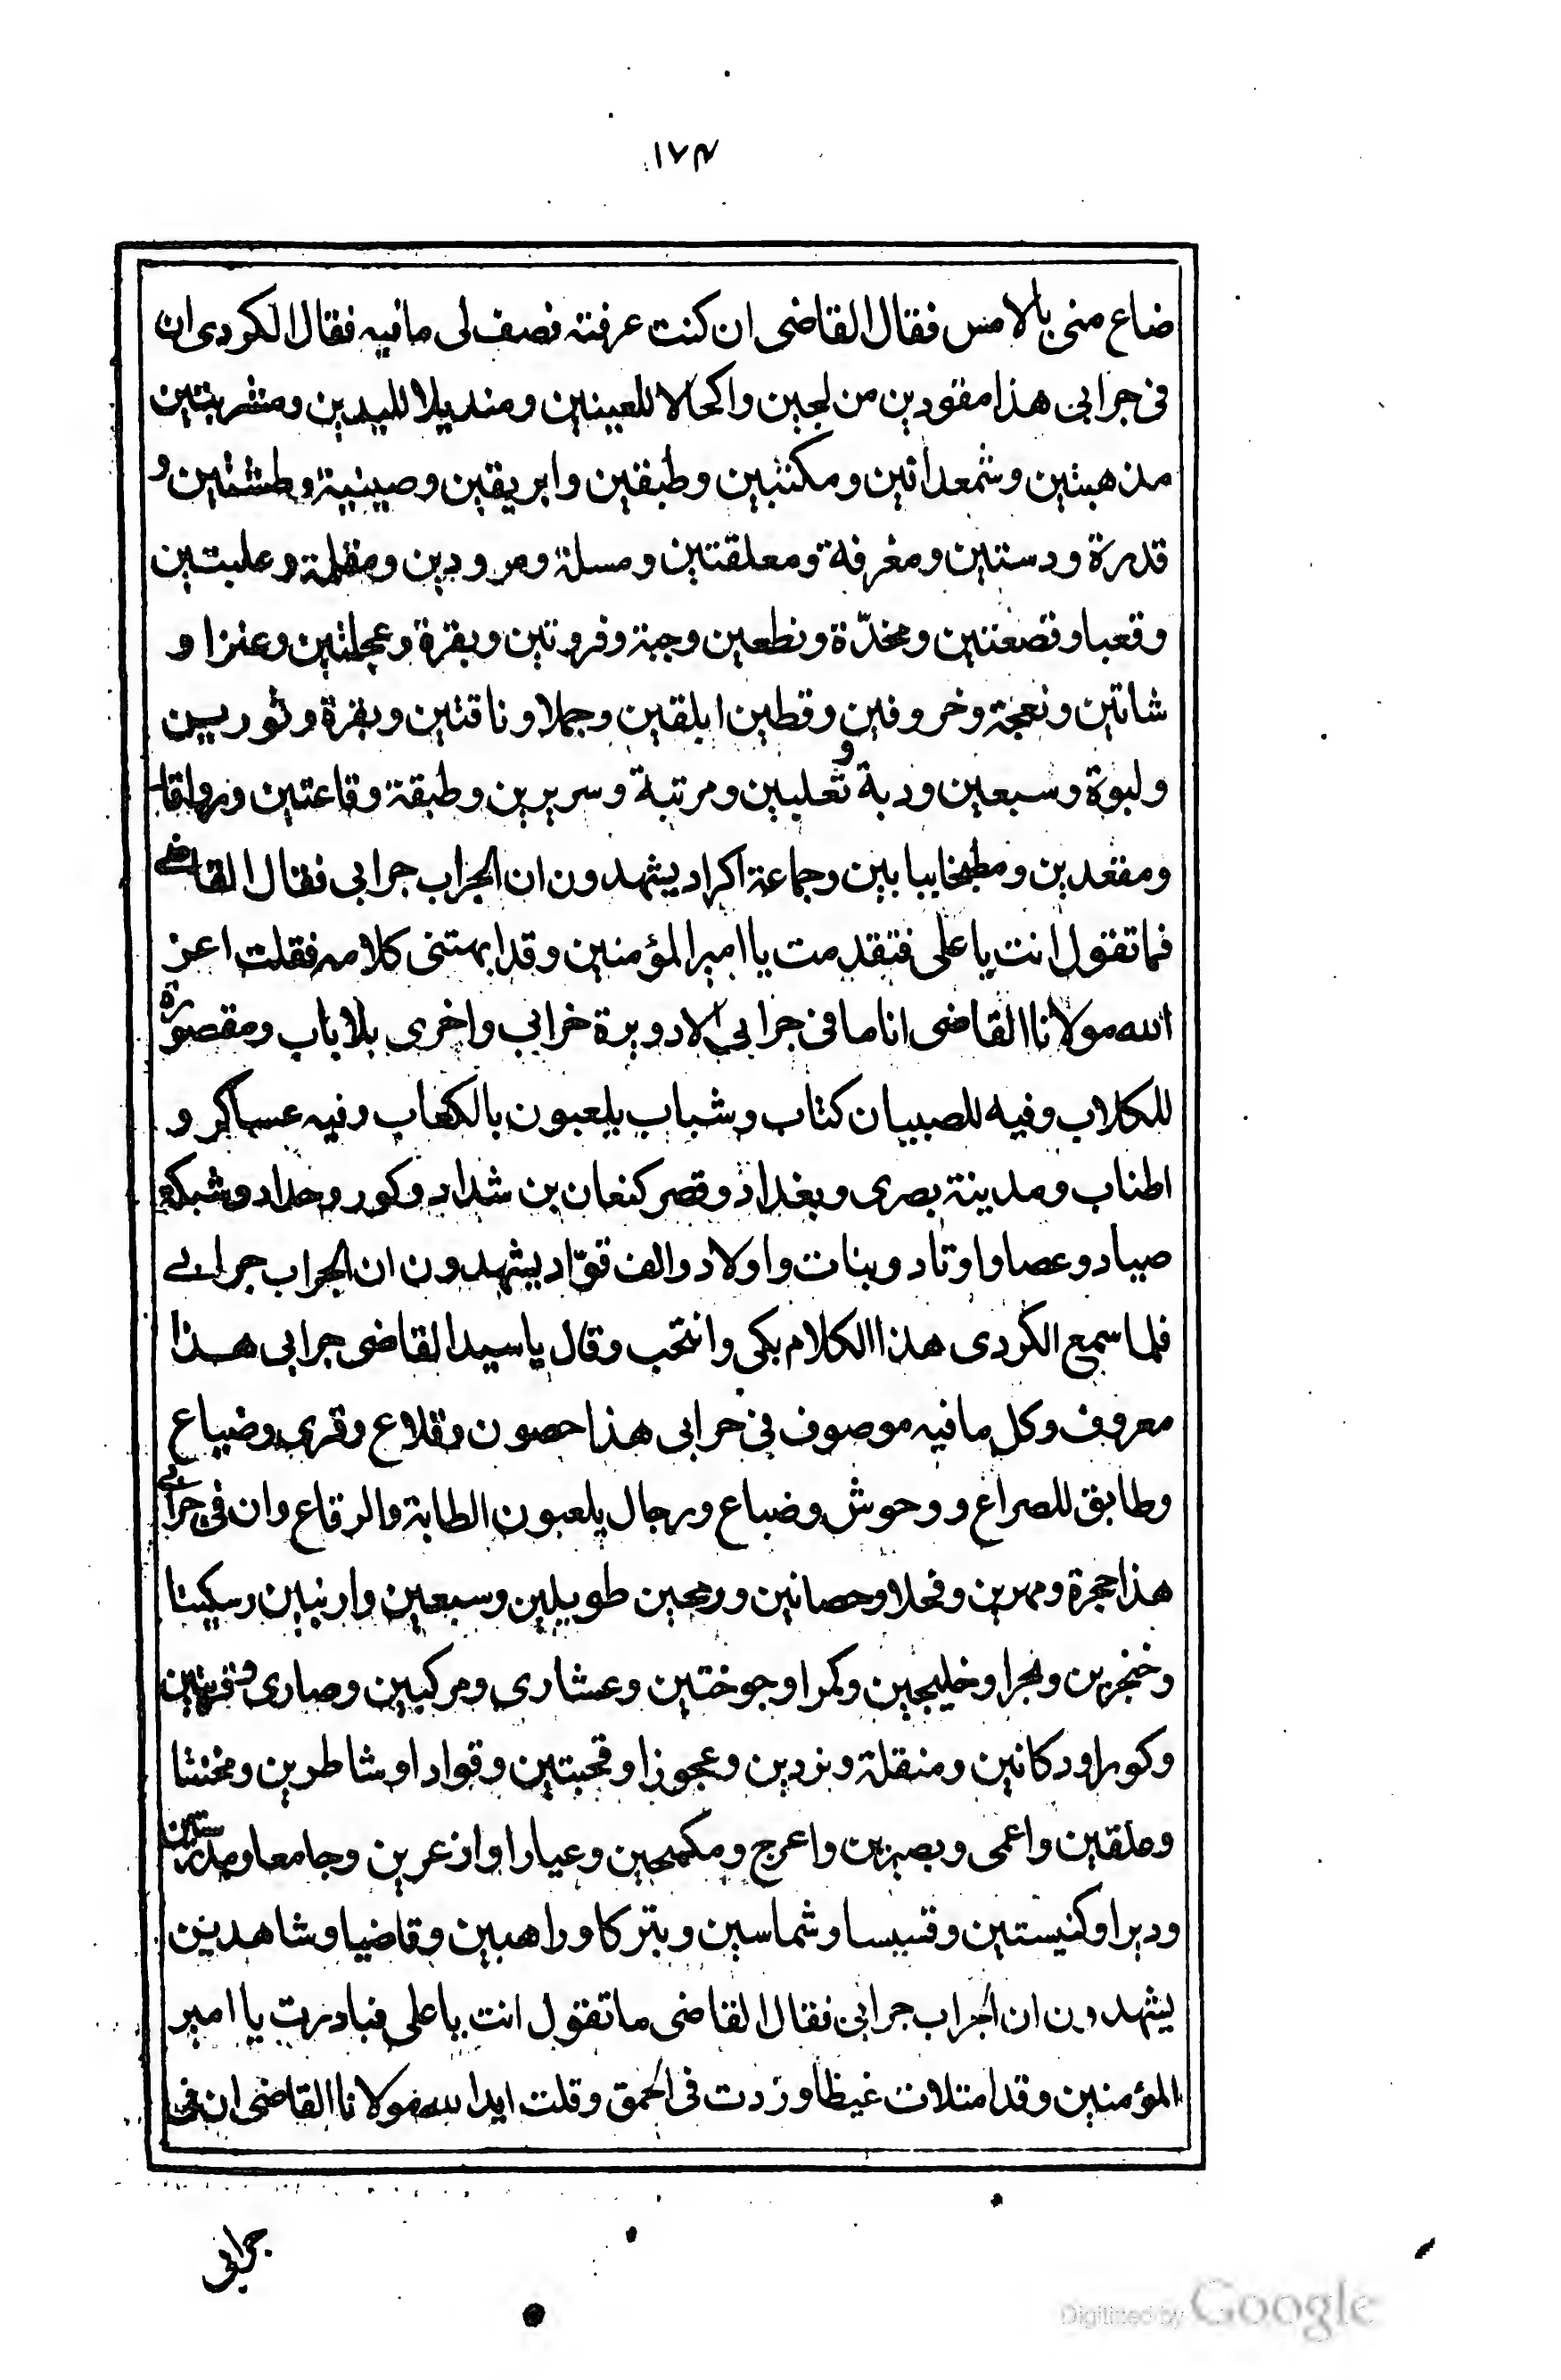 ١٧٤
ضاع منى بالامس فقال القاضى ان كنت عرفته فصف لى ما فيه فقال الكردى ان
فى جرابى هذا مقودين من لجين واكحالا للعينين ومنديلا لليدين ومشربتين
مذهبتين وشمعدانين ومكنتين وطبقين وابريقين وصينية وطشتين و
قدرة ودستين ومغرفة ومعلقتين ومسلة ومرودين ومقلمة وعلبتين
وقعبا وقصعتين ومخدّة ونطعين وجبة وفروتين وبقرة وعجلتين وعنزا و
شاتين ونعجة وخروفين وقطين ابلقين وجملا وناقتين وبقرة وثورين
ولبوة وسبعين ودبة وثعلبين ومرتبة وسريرين وطبقة وقاعتين ورواقا
ومقعدين ومطبخا ببابين وجماعة اكراد يشهدون ان الجراب جرابى فقال القاضى
فما تقول انت يا على فتقدمت يا امير المؤمنين وقد ابهتنى كلامه فقلت اعز
الله مولانا القاضى انا ما فى جرابى الا دويرة خرابى واخرى بلا باب ومقصورة
للكلاب وفيه للصبيان كتاب وشباب يلعبون بالكعاب وفيه عساكر و
اطناب ومدينة بصرى وبغداد وقصر كنعان بن شداد وكور وحداد وشبكة
صياد وعصا واوتاد وبنات واولاد والف قوّاد يشهدون ان الجراب جرابى
فلما سمع الكردى هذا الكلام بكى وانتحب وقال يا سيد القاضى جرابى هذا
معروف وكل ما فيه موصوف فى جرابى هذا حصون وقلاع وقرى وضياع
وطابق للصراع ووحوش وضباع ورجال يلعبون الطابة والرقاع وان فى جرابى
هذا حجرة ومهرين وفحلا وحصانين ورمحين طويلين وسبعين وارنبين وسكينا
وخنجرين وبحرا وخليجين وكمرا وجوختين وعشارى ومركبين وصارى وقريتين
وكورا ودكانين ومنقلة ونردين وعجوزا وقحبتين وقوادا وشاطرين ومخنثا
وعلقين واعمى وبصيرين واعرج ومكسحين وعيارا وازعرين وجامعا ومدرستين
وديرا وكنيستين وقسيسا وشماسين وبتركا وراهبين وقاضيا وشاهدين
يشهدون ان الجراب جرابى فقال القاضى ما تقول انت يا على فبادرت يا امير
المؤمنين وقد امتلات غيظا وزدت فى الحمق وقلت ايد الله مولانا القاضى ان فى
جرابى
Digitized by Google